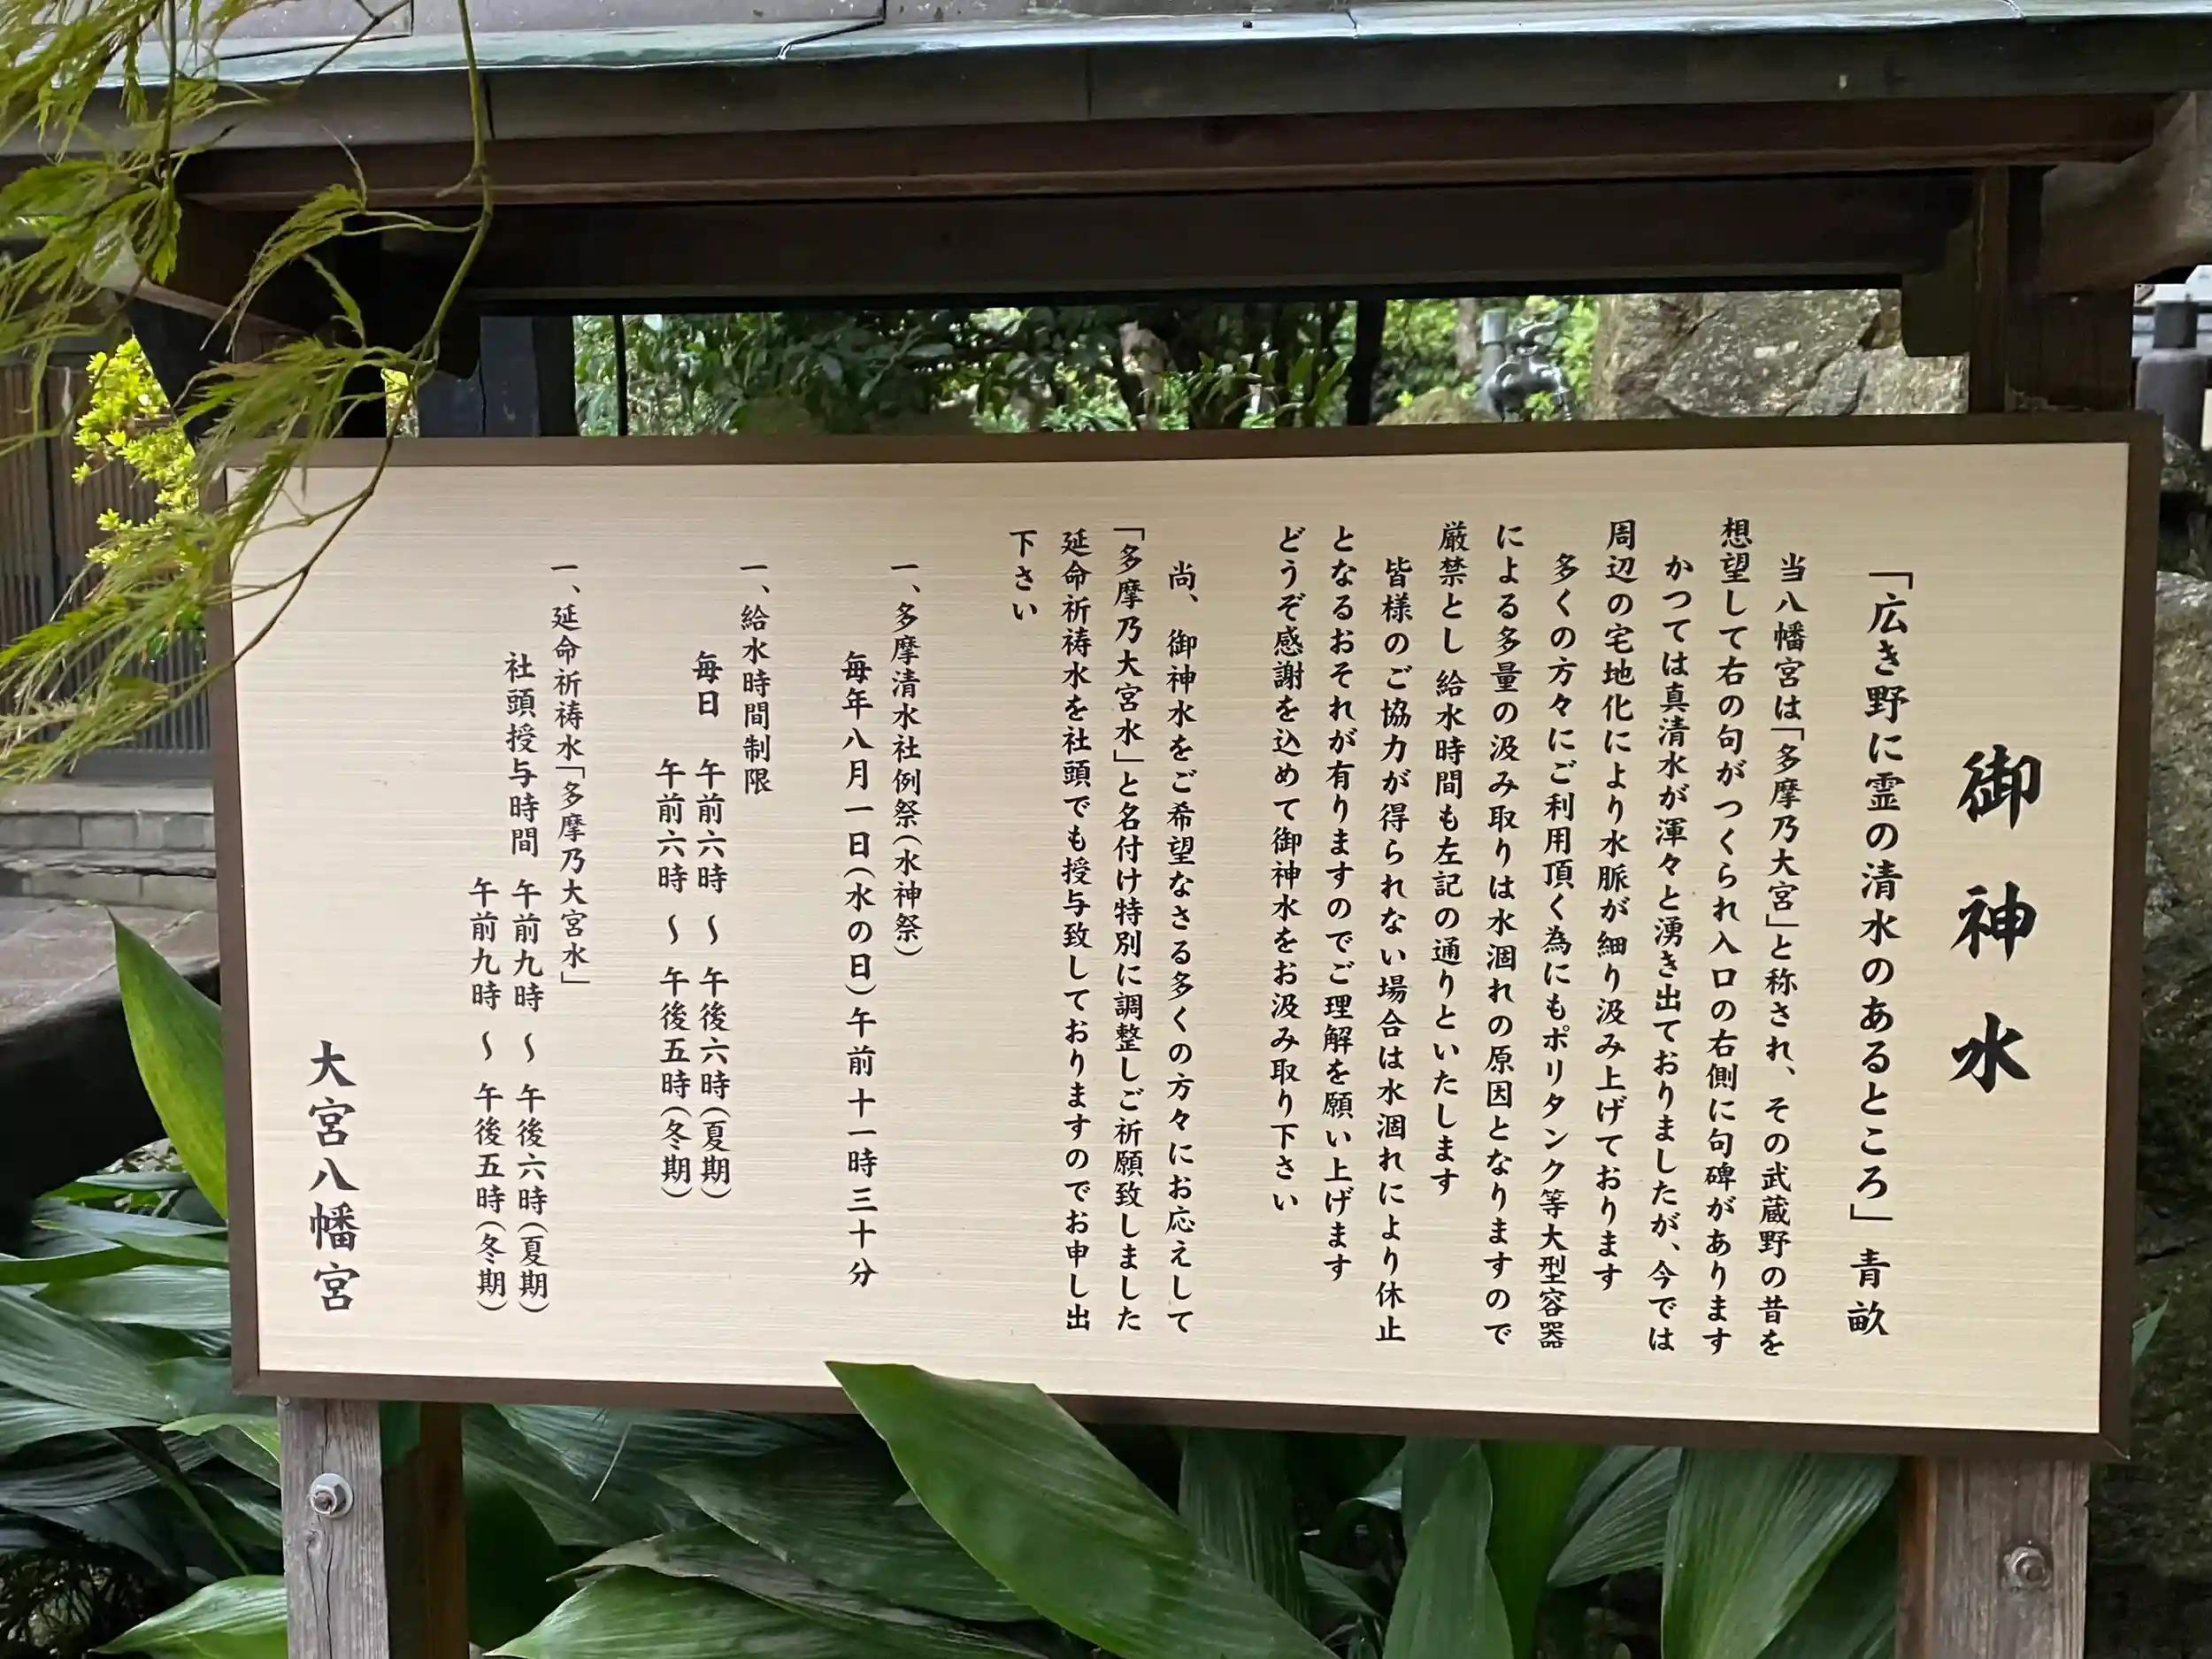 御神水
「広き野に霊の清水のあるところ」青畝
当八幡宮は「多摩乃大宮」と称され、その武蔵野の昔を
想望して右の句がつくられ入口の右側に句碑があります
かつては真清水が渾々と湧き出ておりましたが、今では
周辺の宅地化により水脈が細り汲み上げております
多くの方々にご利用頂く為にもポリタンク等大型容器
による多量の汲み取りは水涸れの原因となりますので
厳禁とし 給水時間も左記の通りといたします
皆様のご協力が得られない場合は水涸れにより休止
となるおそれが有りますのでご理解を願い上げます
どうぞ感謝を込めて御神水をお汲み取り下さい
尚、御神水をご希望なさる多くの方々にお応えして
「多摩乃大宮水」と名付け特別に調整しご祈願致しました
延命祈祷水を社頭でも授与致しておりますのでお申し出
下さい
一、多摩清水社例祭(水神祭)
毎年八月一日(水の日)午前十一時三十分
一、給水時間制限
毎日 午前六時 〜 午後六時(夏期)
午前六時 〜 午後五時(冬期)
一、延命祈祷水「多摩乃大宮水」
社頭授与時間 午前九時 〜 午後六時(夏期)
午前九時 〜 午後五時(冬期)
大宮八幡宮